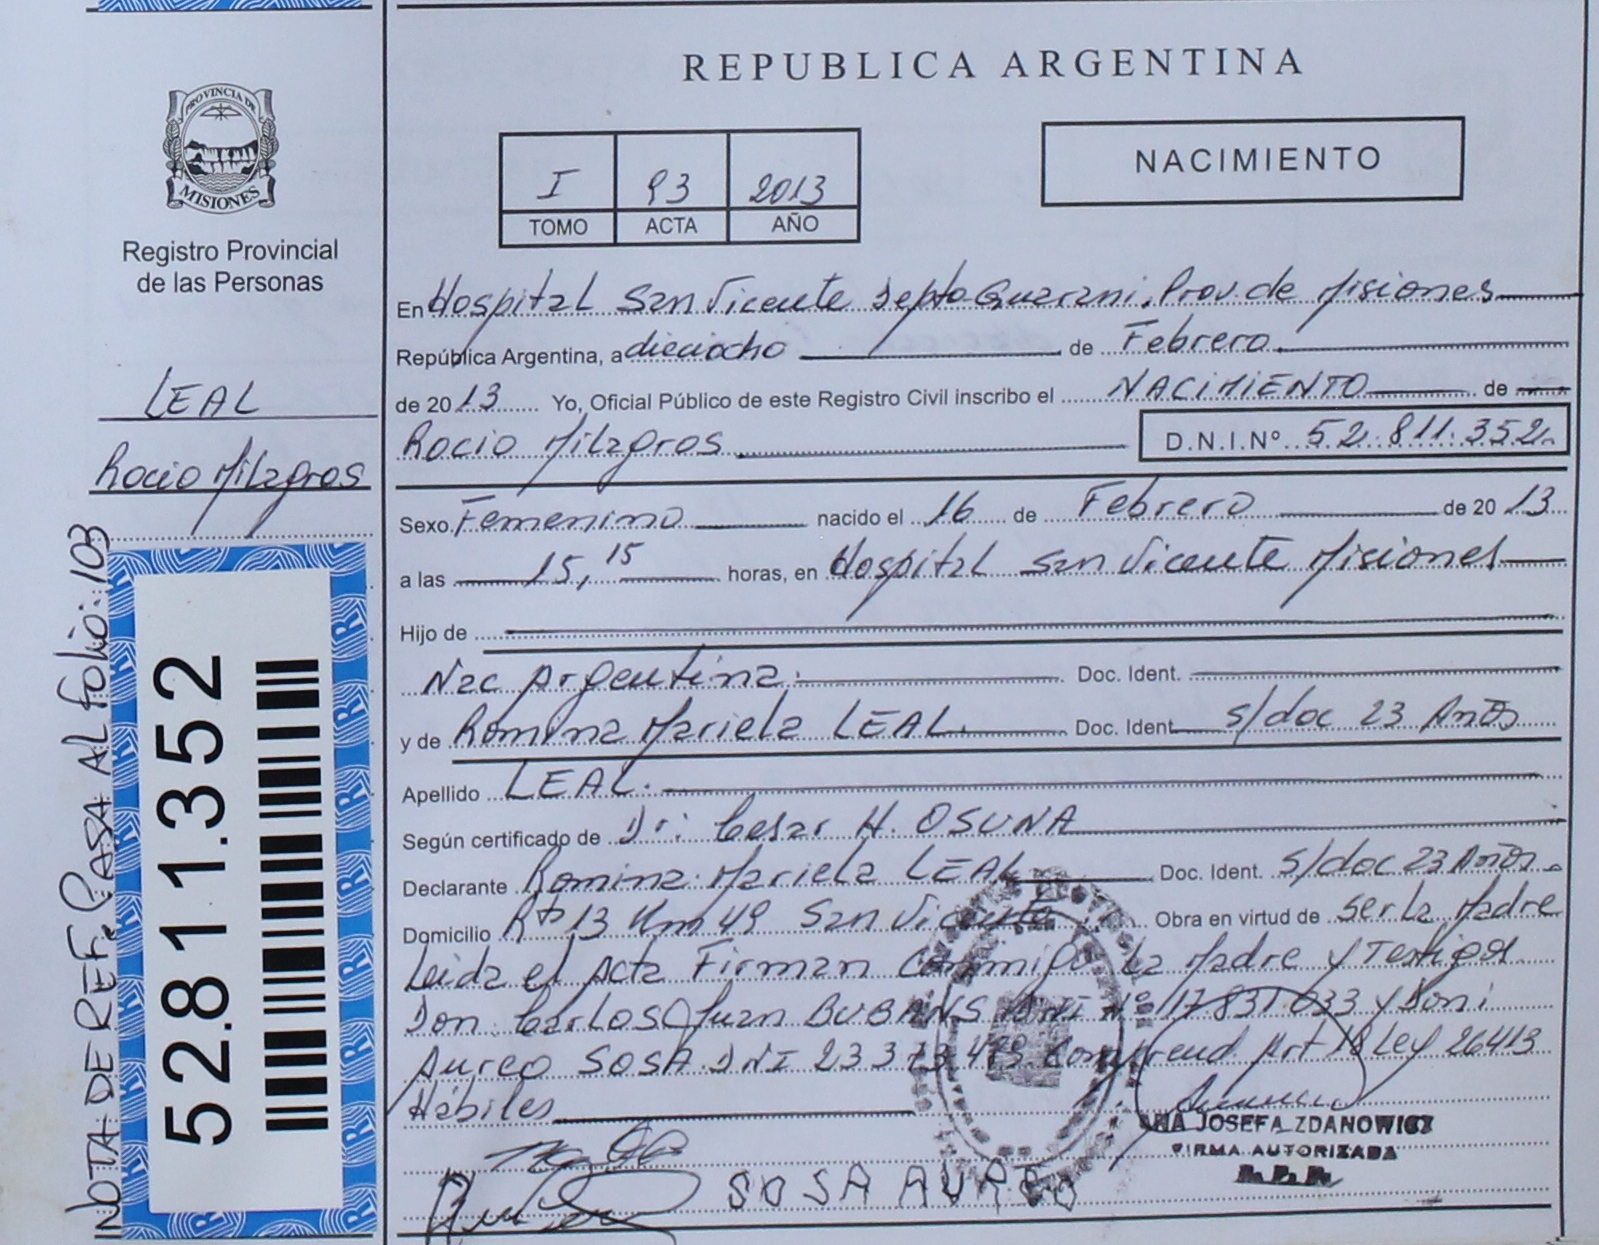 REPUBLICA ARGENTINA
PROVINCIA DE
MISIONES
Registro Provincial
de las Personas
I 93 2013
TOMO ACTA AÑO
NACIMIENTO
LEAL
Rocio Milagros
NOTA DE REF. PASA AL Folio: 103
52.811.352
En Hospital San Vicente Depto Guarani, Prov. de Misiones
República Argentina, a dieciocho de Febrero
de 2013 Yo, Oficial Público de este Registro Civil inscribo el NACIMIENTO de
Rocio Milagros D.N.I.Nº 52.811.352
Sexo Femenino nacido el 16 de Febrero de 2013
a las 15,15 horas, en Hospital San Vicente Misiones
Hijo de
Nac Argentina. Doc. Ident.
y de Romina Mariela LEAL. Doc. Ident. s/doc 23 Años
Apellido LEAL.
Según certificado de Dr: Cesar H. OSUNA
Declarante Romina Mariela LEAL Doc. Ident. s/doc 23 Años
Domicilio Rta 13 Km 49 San Vicente Obra en virtud de ser la Madre
Leida el Acta Firman Conmigo La Madre y Testigos
Don Carlos Juan DNI Nº 17831033 y
Aureo SOSA DNI Comprend Art 18 Ley 26413
Hábiles
SOSA AUREO
JOSEFA ZDANOWICZ
FIRMA AUTORIZADA